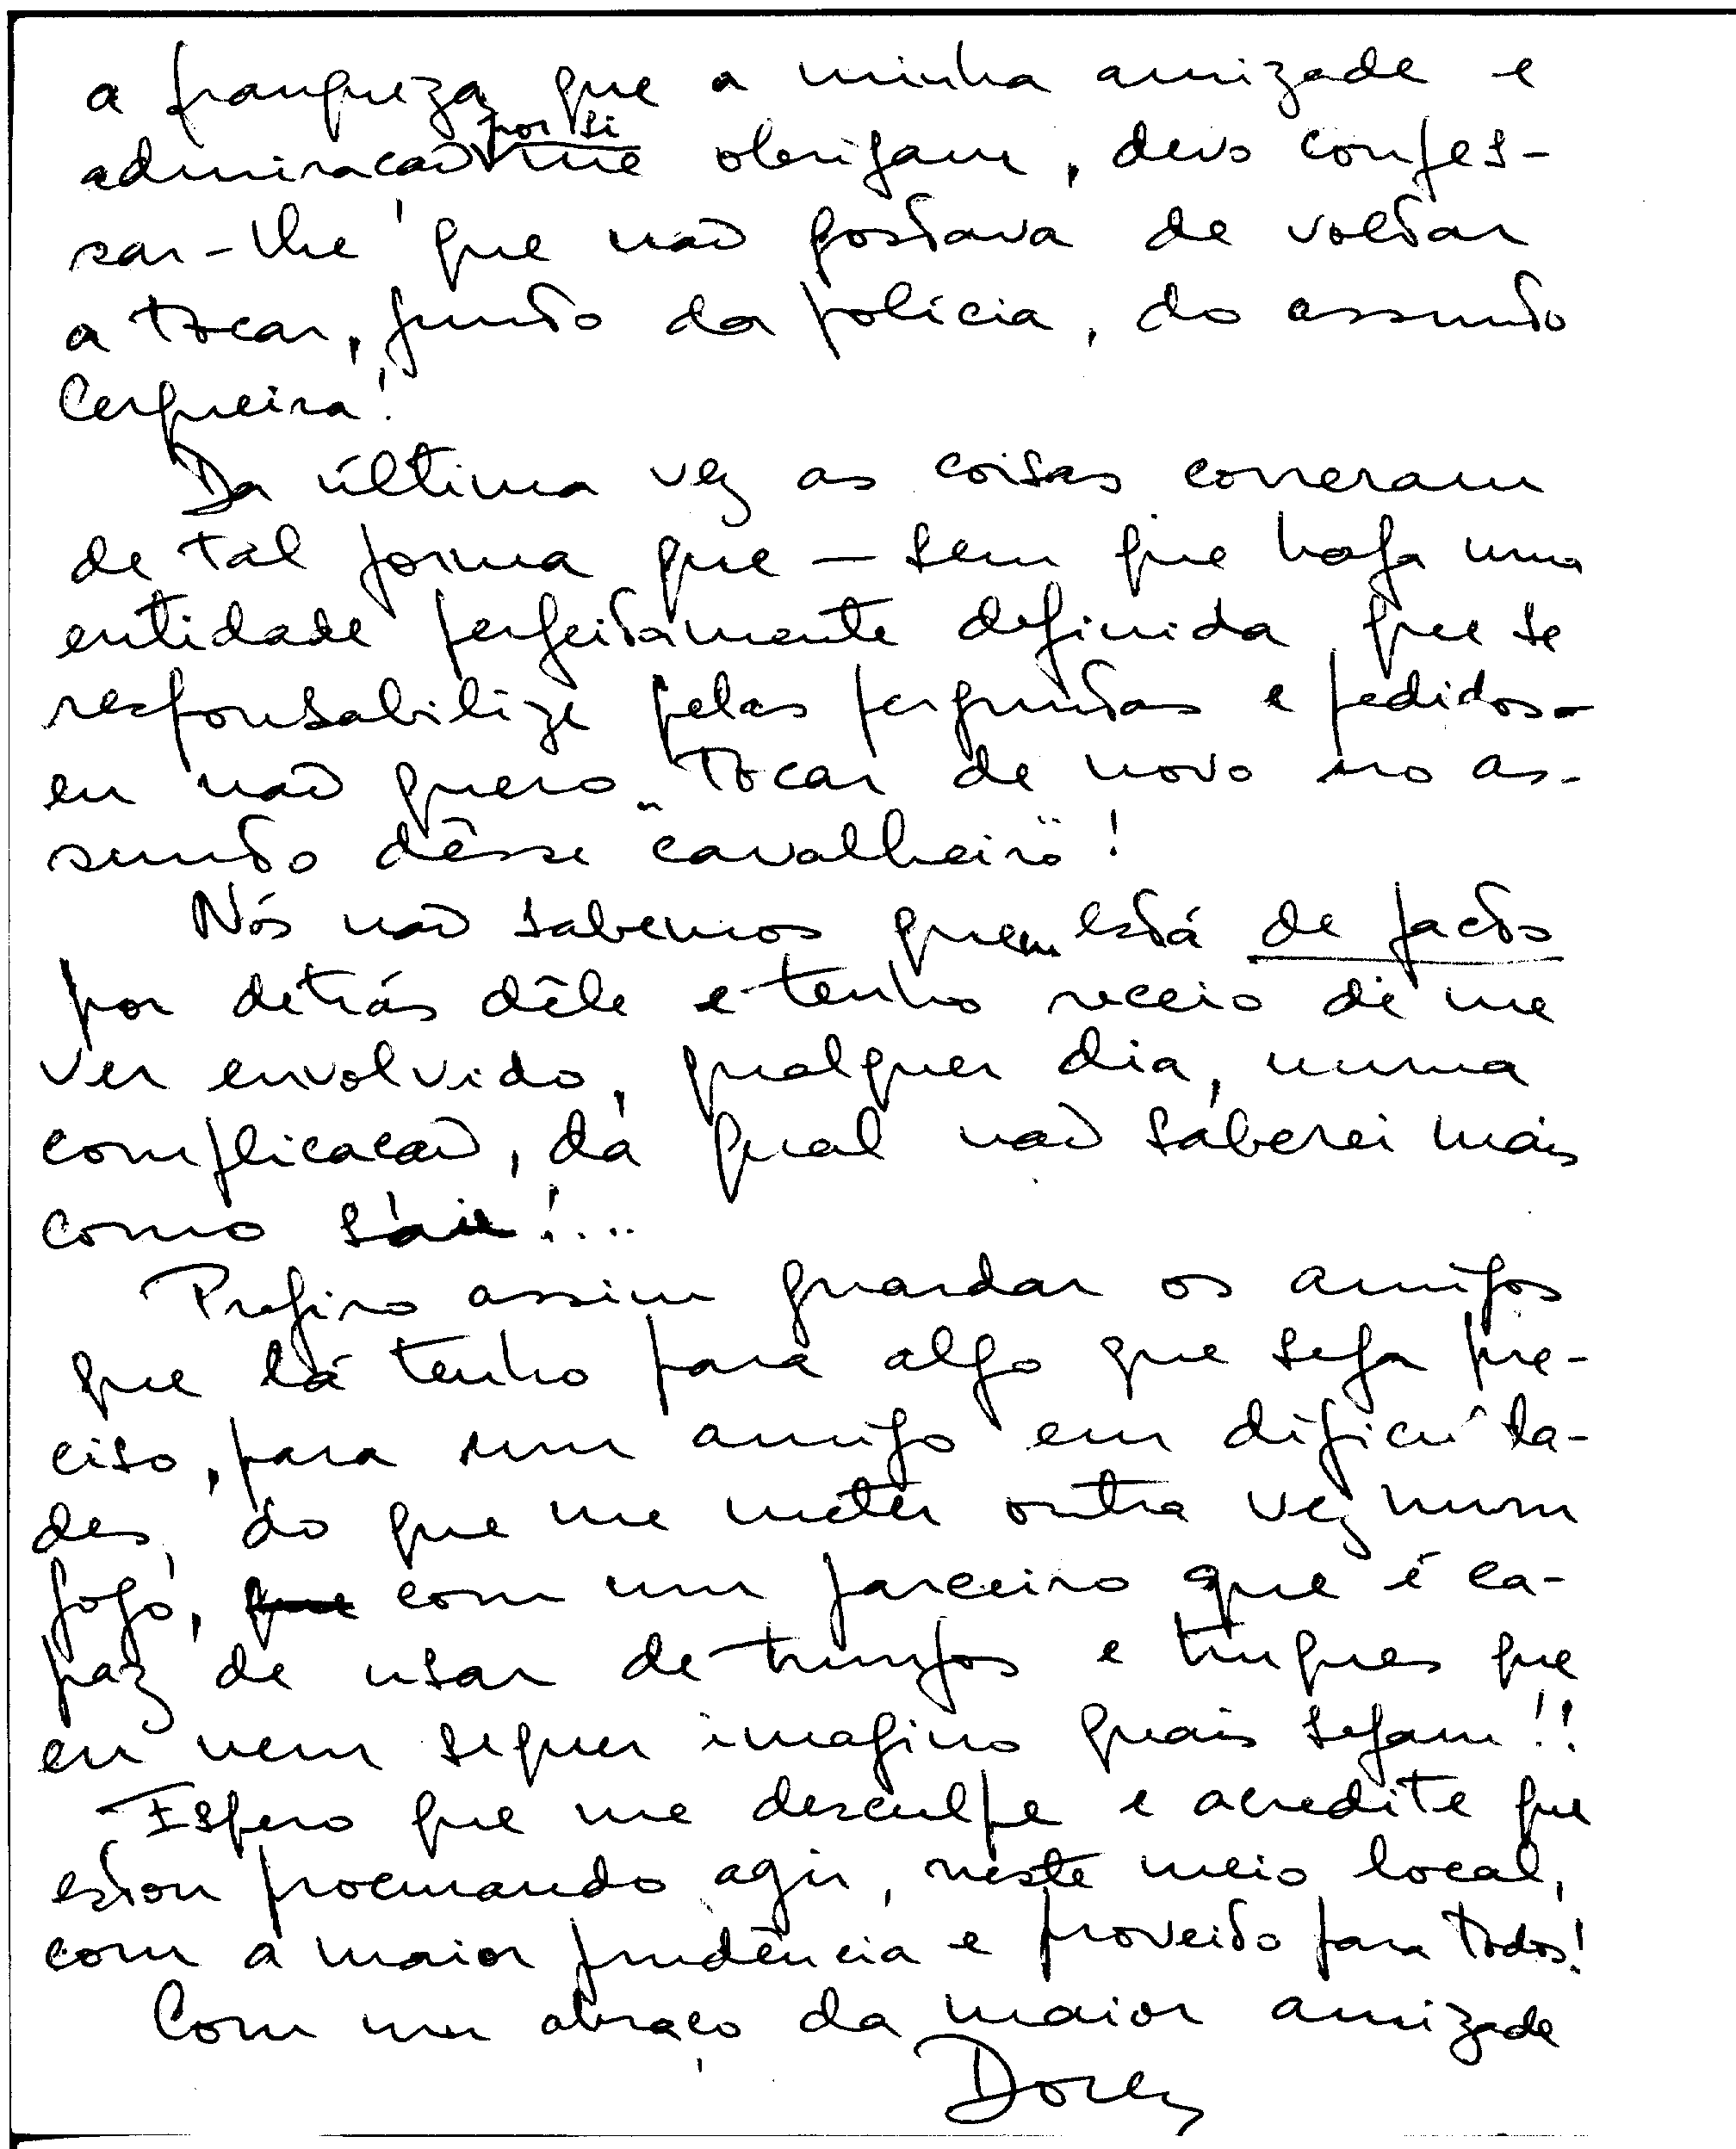 a franqueza que a minha amizade e
admiração por si me obrigam, devo confes-
sar-lhe que não gostava de voltar
a tocar, junto da polícia, do assunto
Cerqueira!
Da última vez as coisas correram
de tal forma que — sem que haja uma
entidade perfeitamente definida que se
responsabilize pelas perguntas e pedidos —
eu não quero tocar de novo no as-
sunto dêsse "cavalheiro"!
Nós não sabemos quem está de facto
por detrás dêle e tenho receio de me
ver envolvido, qualquer dia, numa
complicação, da qual não saberei mais
como sair!...
Prefiro assim guardar os amigos
que lá tenho para algo que seja pre-
ciso, para um amigo em dificulda-
des, do que me meter outra vez num
jogo, que com um parceiro que é ca-
paz de usar de trunfos e truques que
eu nem sequer imagino quais sejam!!
Espero que me desculpe e acredite que
estou procurando agir, neste meio local,
com a maior prudência e proveito para todos!
Com um abraço da maior amizade